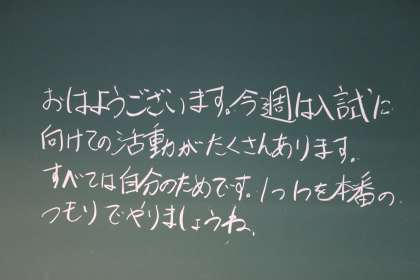 おはようございます。今週は入試に
向けての活動がたくさんあります。
すべては自分のためです。1つ1つを本番の
つもりでやりましょうね。